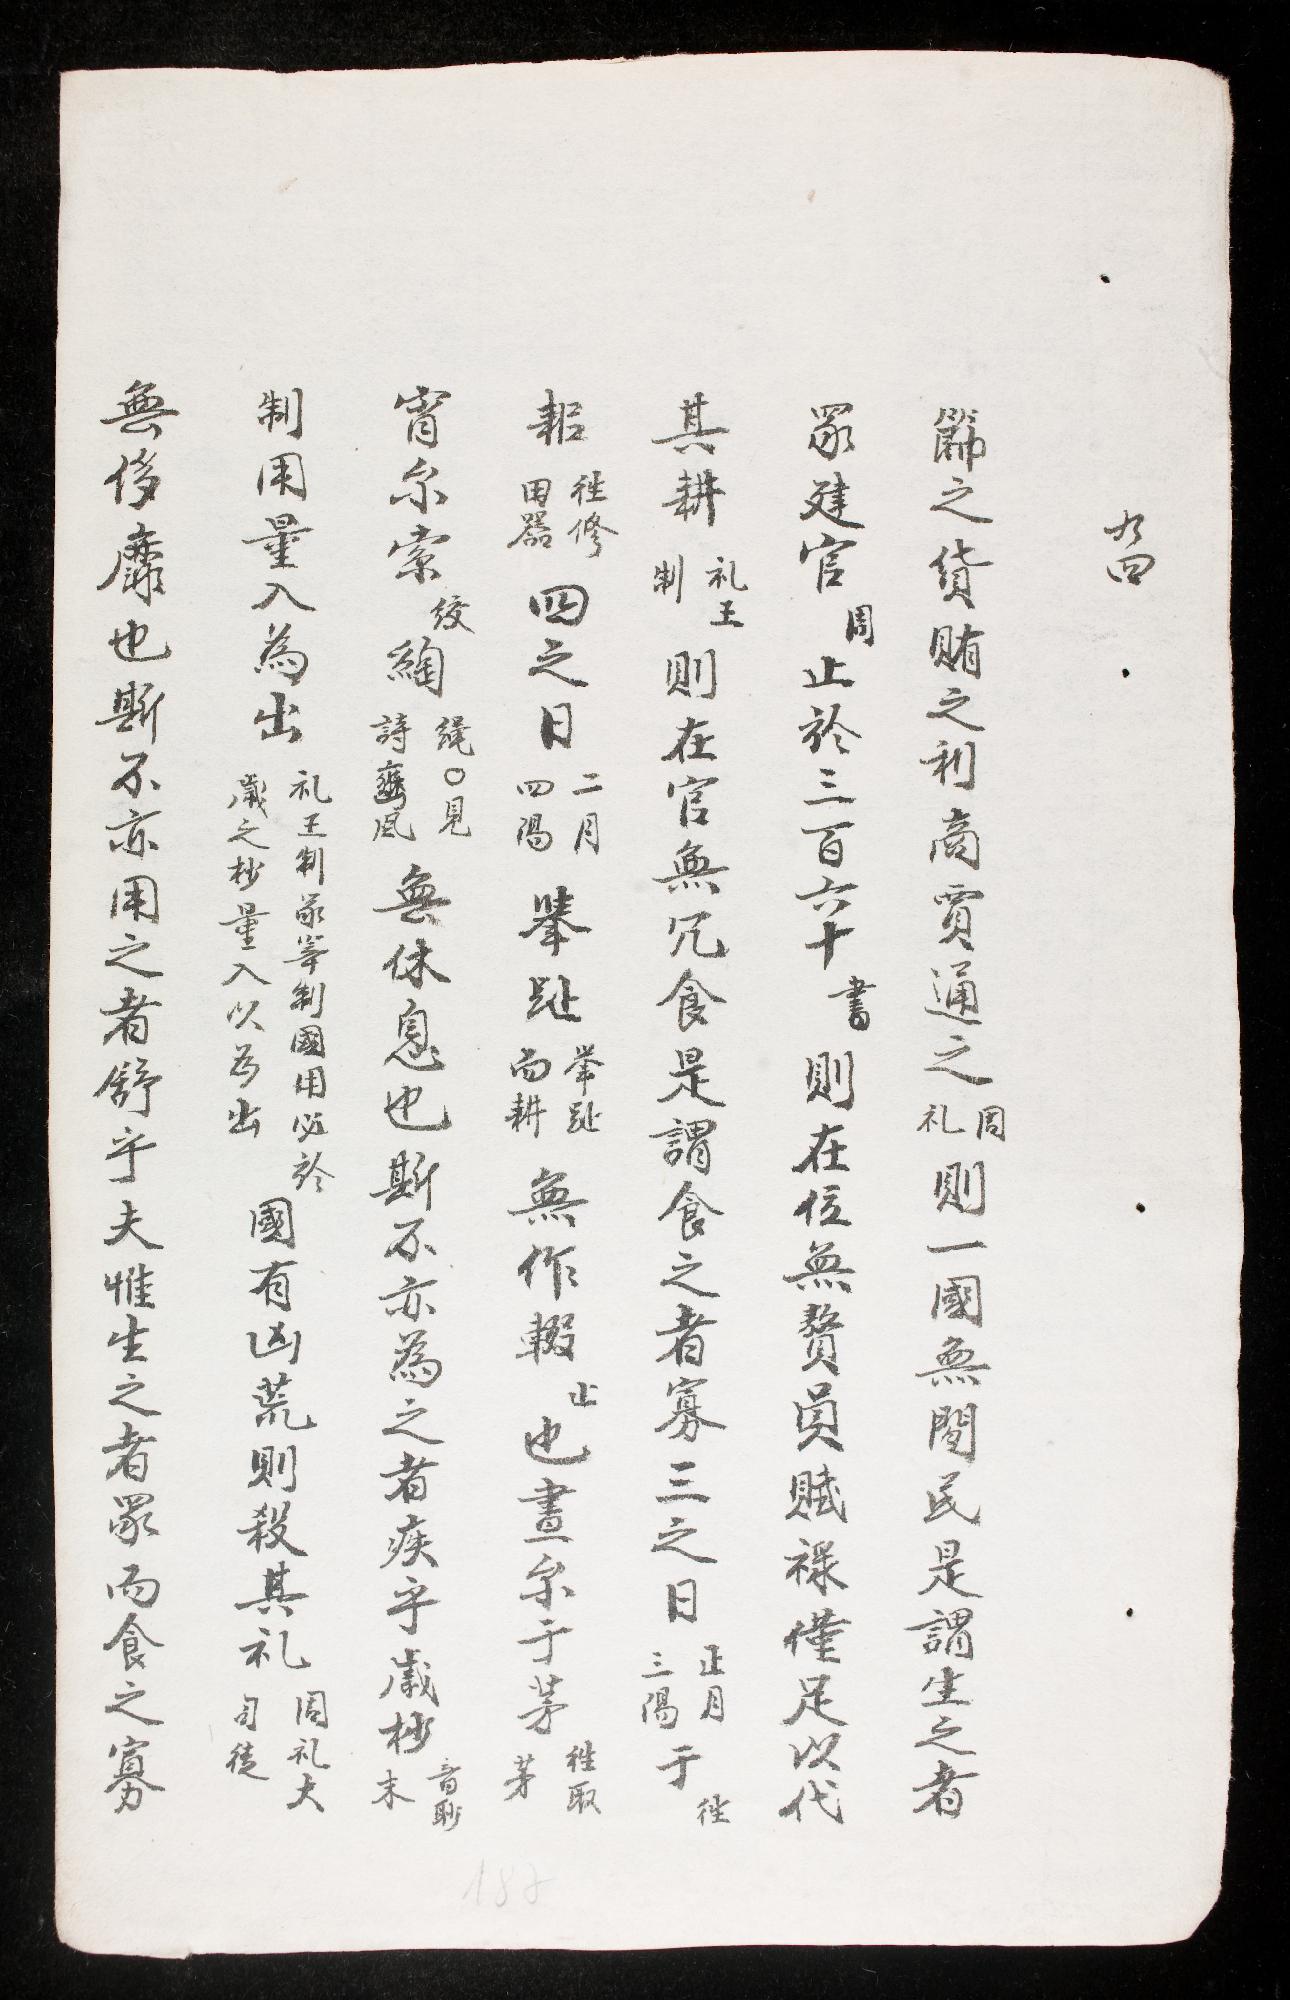 九四
篩之貨賄之利商賈通之周礼則一國無閒民是謂生之者
眾建官周止於三百六十書則在位無贅員賦祿僅足以代
其耕礼王制則在官無冗食是謂食之者寡三之日正月三陽于徃
耜徃修田器四之日二月四陽舉趾举趾而耕無作輟止也晝尔于茅徃取茅
宵尔索絞綯繩○見詩豳風無休息也斯不亦為之者疾乎歲杪音眇末
制用量入為出礼王制冢宰制國用必於歲之杪量入以為出國有凶荒則殺其礼周礼大司徒
無侈靡也斯不亦用之者舒乎夫惟生之者眾而食之寡